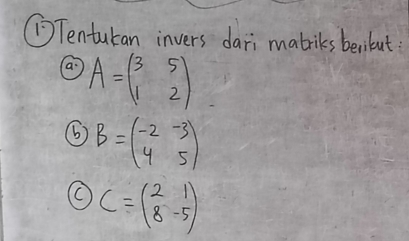 ① Tentukan invers dari matriks berikut :
ⓐ A = (3 5
1 2)
ⓑ B = (-2 -3
4 5)
ⓒ C = (2 1
8 -5)